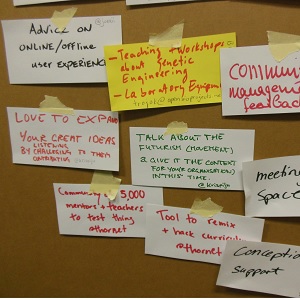 ADVICE ON
ONLINE/offline
user EXPERIENCE
- Teaching + Workshops
about Genetic
Engineering
- Laboratory Equipm
COMMUNI
management
feedback
LOVE TO EXPAND
YOUR GREAT IDEAS
LISTENING,
BY CHALLENGING TO THEM
CONTRIBUTING
TALK ABOUT THE
FUTURISM (MOVEMENT)
& GIVE IT THE CONTENT
FOR YOUR ORGANISATION)
IN THIS TIME.
meeting
space
Community of 5,000
mentors + teachers
to test thing
@hornet
Tool to remix
+ hack curricu
@hornet
Conception
support